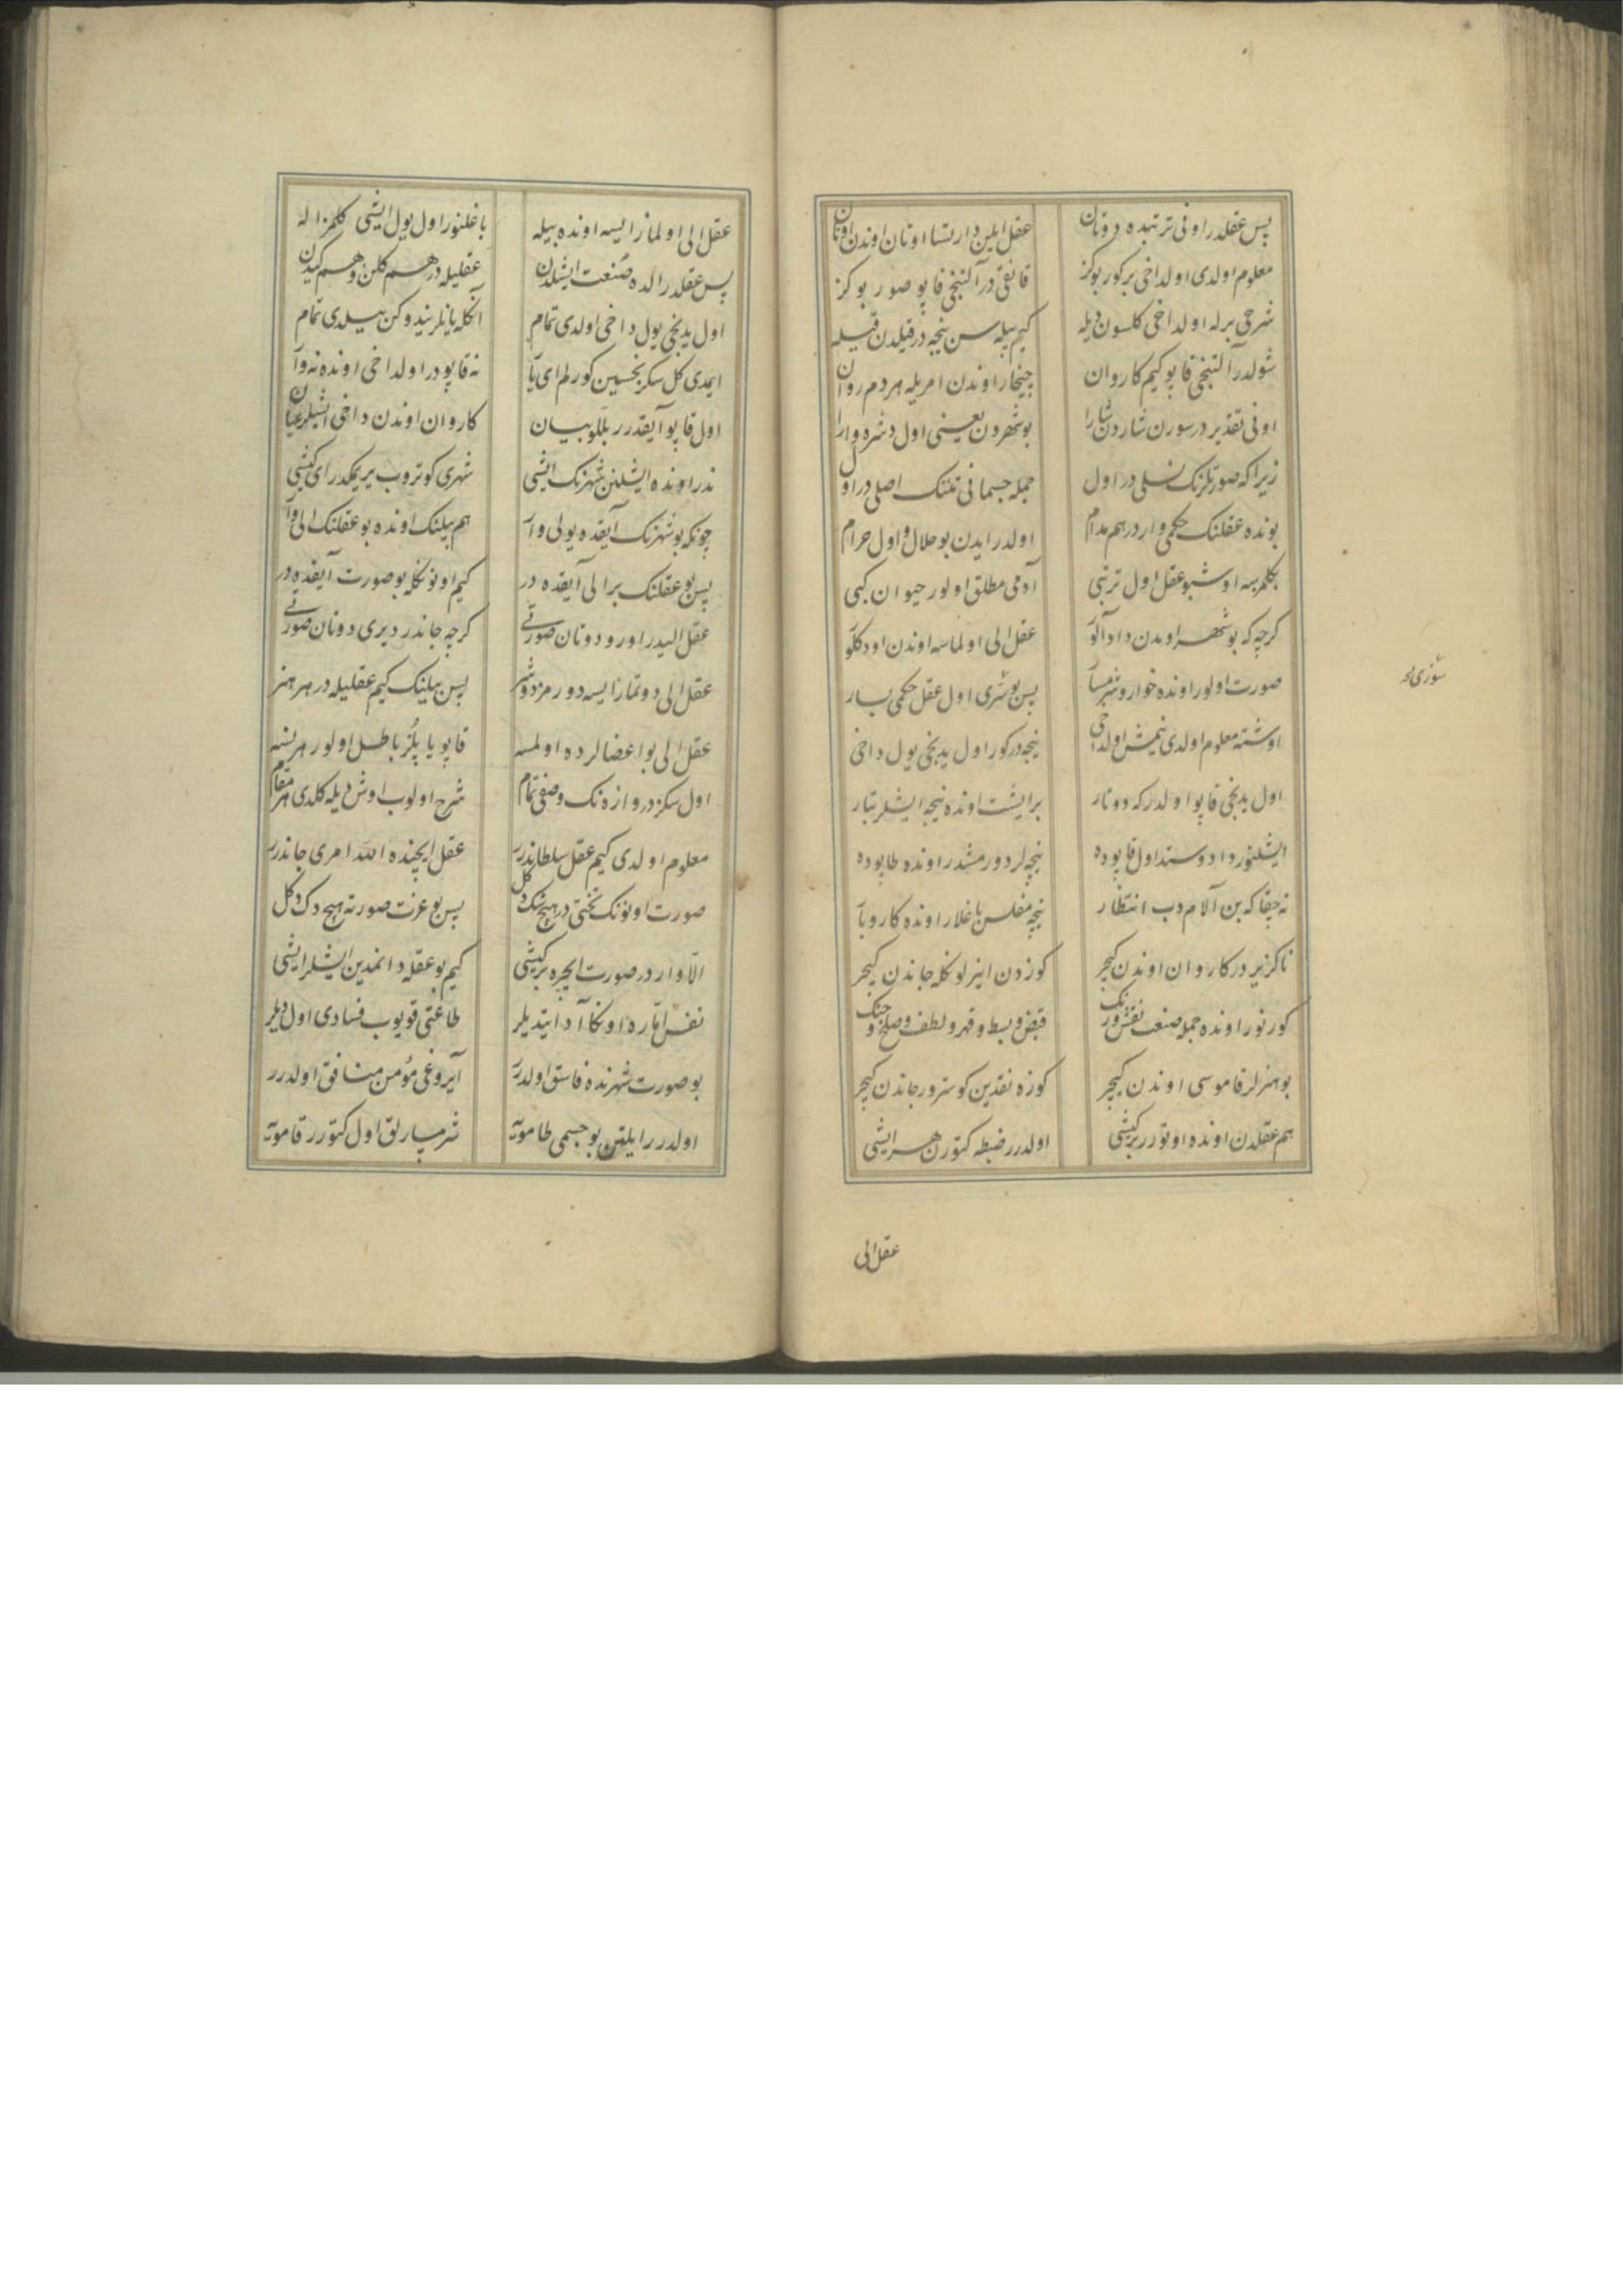 پس عقلدر اونی ترتبده دوتان عقل ایلین دارتسا اوتان اوندن اوتان
معلوم اولدی اولداخی بر کور بو کز قانقی در آلتنجی قاپو صور بو کز
شرحی بر له اولداخی کلسون دیله کیم بیله سن نیجه در قیلدن قیله
شولدر آلتنجی قاپو کیم کاروان چیخار اوندن امریله هردم روان
اونی تقدیر در سورن شاردن شارا بو شهردن یعنی اول دشره وارا
زیرا که صورتلرنک نسلی در اول جمله جسمانی تنلنک اصلی در اول
بونده عقلنک حکمی وار در هم مدام اولدر ایدن بو حلال و اول حرام
بکلمزسه اوشبو عقل اول ترتبی آدمی مطلق اولور حیوان کبی
کرچه که بو شهر اوندن داد آلور عقل الی اولماسه اوندن اود کلور
صورت اولور اونده خوار و شرمسار پس بو شری اول عقل حکمی بسار
اوشته معلوم اولدی نیمش اولداخی نیجه در کور اول یدنجی یول داخی
اول یدنجی قاپو اولدر که دوتار بر ایشت اونده نیجه ایشلر بتار
ایشلنور داد و ستد اول قاپوده نیچه لر دورمشدر اونده طاپوده
نه چقا که بن آلام دب انتظار نیچه مفلس باغلار اونده کاروبار
ناکزیر در کاروان اوندن کیچر کوزدن اینر لو نکله جاندن کیچر
کورنور اونده جمله صنعت نقش و رنک قبض و بسط و قهر و لطف و صلح و جنک
بو هنرلر قاموسی اوندن کیچر کوزه نقدین کوسترور جاندن کیچر
هم عقلدن اونده اوتورر بر کیشی اولدرر ضبطه کتورن هر ایشی
عقل الی
عقل الی اولماز ایسه اونده بیله باغلنور اول یول ایشی کلمز اله
پس عقلدر الده صنعت ایشلدن عقلیله در هم کلن و هم کیدن
اول یدنجی یول داخی اولدی تمام آنکله یانلر نیدوکن بیلدی تمام
ایمدی کل سکزنجسین کورلم ای یار نه قاپودر اولداخی اونده نه وار
اول قاپو آیقدرر بللو بیان کاروان اوندن داخی ایشلر عیان
ندر اونده ایشلنن شهرنک ایشی شهری کوتروب یریمکدر ای کیشی
چونکه بو شهرنک آیقده یولی وار هم بیلنک اونده بو عقلنک الی وار
پس بو عقلنک بر الی آیقده در کیم اونونکله بو صورت آیقده در
عقل الیدر اورو دوتان صورتی کرچه جاندر دیری دوتان صورتی
عقل الی دوتماز ایسه دورمز دوشر پس بیلینک کیم عقلیله در هر هنر
عقل الی بو اعضالرده اولمسه قاپو یاپلز باطل اولور هر نسه
اول سکز دروازه نک وصفی تمام شرح اولوب اوش دیله کلدی هر مقام
معلوم اولدی کیم عقل سلطاندرر عقل ایچنده الله امری جاندرر
صورت اونونک تختی در هیچ شک دکل پس بو عزت صورته هیچ دک دکل
الا وار در صورت ایچره بر کیشی کیم بو عقله دانمدین ایشلر ایشی
نفس اماره اونکا آد ایتدیلر طاعتی قویوب فسادی اول دیلر
بو صورت شهرنده فاسق اولدرر آیروغی مؤمن منافق اولدرر
اولدرر ایلتن بو جسمی طاموته شرمسارلق اول کتورر قاموته